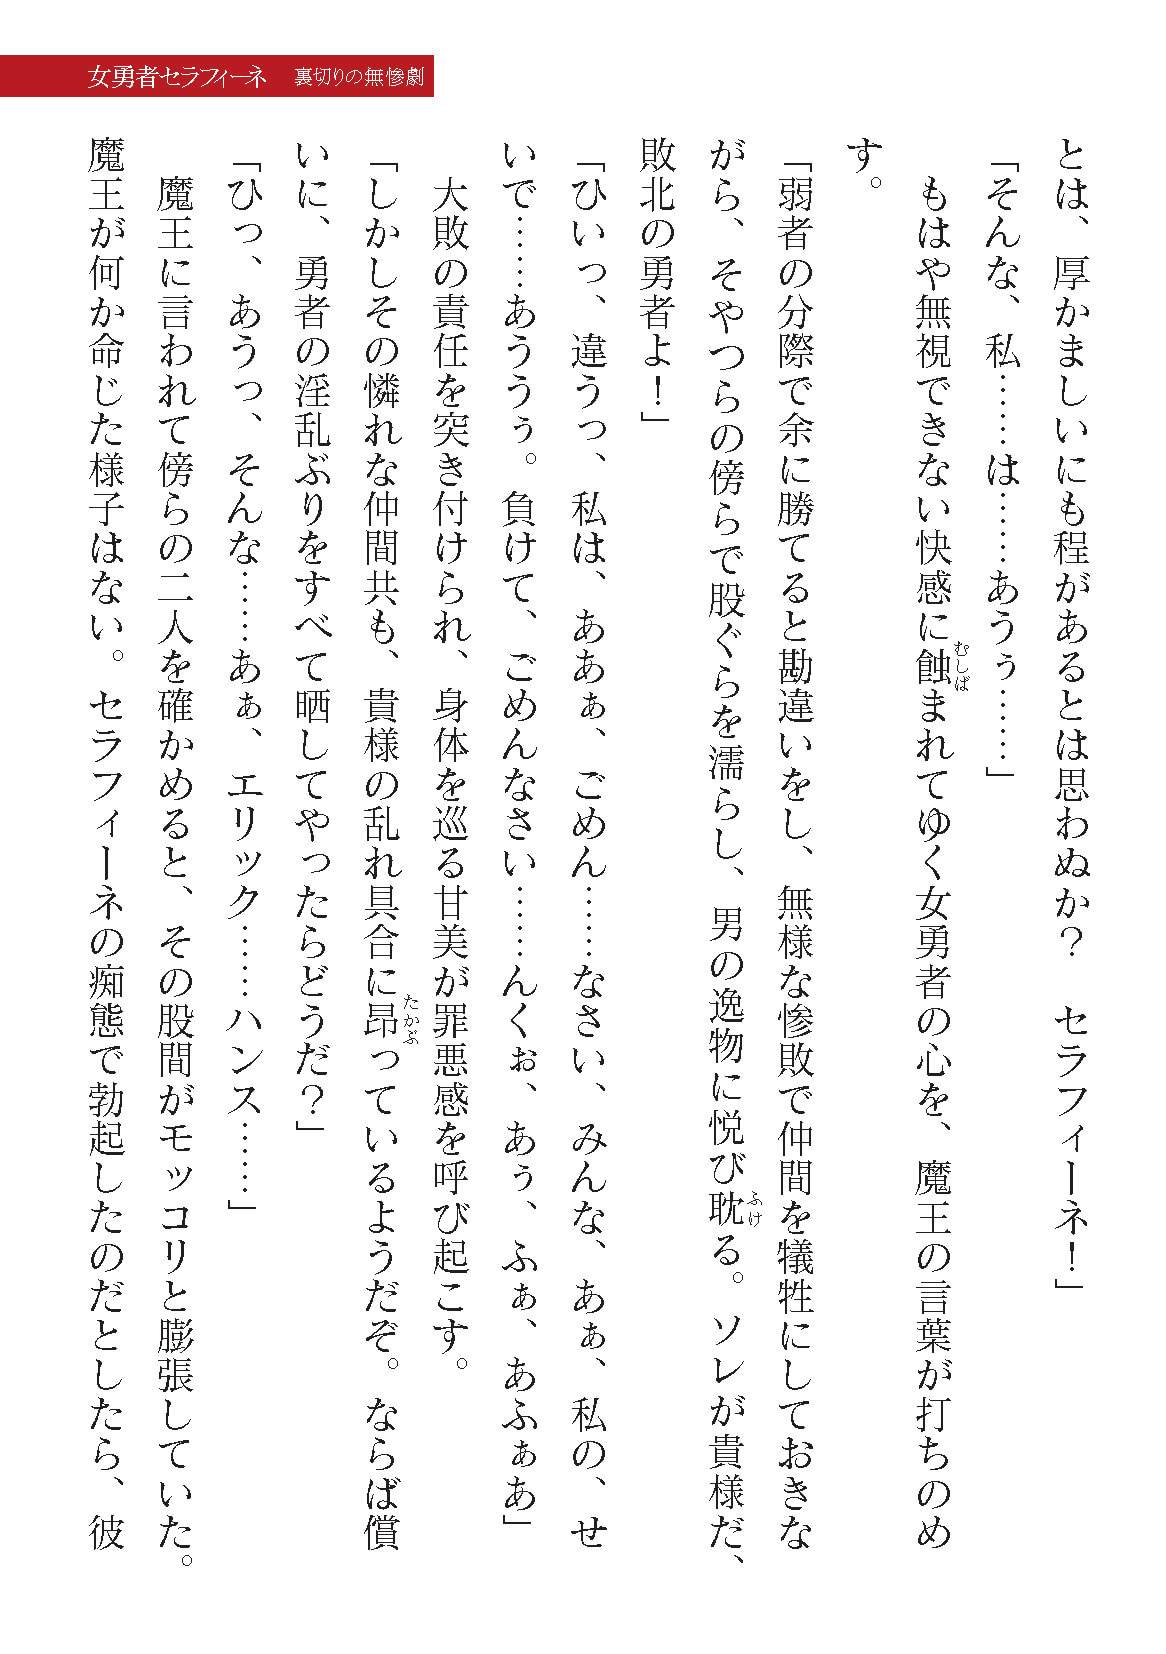 女勇者セラフィーネ　裏切りの無惨劇
とは、厚かましいにも程があるとは思わぬか？　セラフィーネ！」
「そんな、私……は……あうぅ……」
　もはや無視できない快感に蝕まれてゆく女勇者の心を、魔王の言葉が打ちのめ
むしば
す。
「弱者の分際で余に勝てると勘違いをし、無様な惨敗で仲間を犠牲にしておきな
がら、そやつらの傍らで股ぐらを濡らし、男の逸物に悦び耽る。ソレが貴様だ、
ふけ
敗北の勇者よ！」
「ひいっ、違うっ、私は、ああぁ、ごめん……なさい、みんな、あぁ、私の、せ
いで……あううぅ。負けて、ごめんなさい……んくぉ、あぅ、ふぁ、あふぁあ」
　大敗の責任を突き付けられ、身体を巡る甘美が罪悪感を呼び起こす。
「しかしその憐れな仲間共も、貴様の乱れ具合に昂っているようだぞ。ならば償
たかぶ
いに、勇者の淫乱ぶりをすべて晒してやったらどうだ？」
「ひっ、あうっ、そんな……あぁ、エリック……ハンス……」
　魔王に言われて傍らの二人を確かめると、その股間がモッコリと膨張していた。
魔王が何か命じた様子はない。セラフィーネの痴態で勃起したのだとしたら、彼